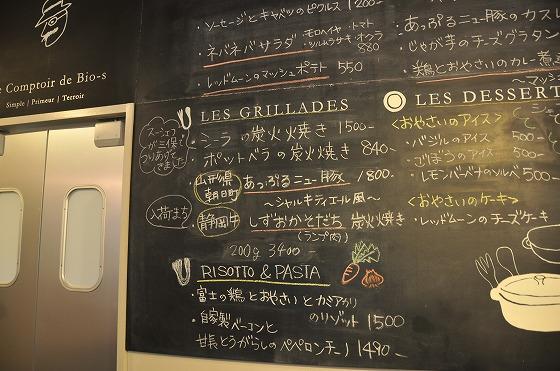 e Comptoir de Bio-s
Simple / Primeur / Terroir
・ソーセージとキャベツのピクルス 1200-
・ネバネバサラダ・モロヘイヤ・トマト
・ツルムラサキ・オクラ
880
・レッドムーンのマッシュポテト 550
・あっぷるニュー豚のカス
・じゃが芋のチーズグラタン
・鶏とおやさいのカレー煮
LES GRILLADES
シェフが三保でつりあげてきました
・シーラの炭火焼き 1500-
・ポットベラの炭火焼き 840-
山形県
朝日町
あっぷるニュー豚 1800-
～シャルキティエール風～
入荷まち
静岡牛
しずおかそだち 炭火焼き
(ランプ肉)
200g 3400-
RISOTTO & PASTA
・富士の鶏とおやさいとカミアカリ
のリゾット 1500
・自家製ベーコンと
甘長とうがらしのペペロンチーノ 1490-
LES DESSERT
<おやさいのアイス>
・バジルのアイス 500
・ごぼうのアイス 500-
・レモンバーベナのソルベ 500
<おやさいのケーキ>
・レッドムーンのチーズケーキ